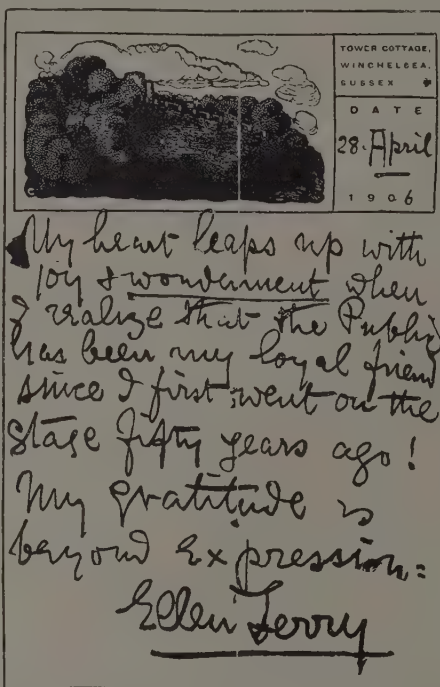 TOWER COTTAGE,
WINCHELSEA,
SUSSEX
DATE
28. April
1906
My heart leaps up with
joy & wonderment when
I realize that the Public
has been my loyal friend
since I first went on the
Stage fifty years ago!
My gratitude is
beyond Expression=
Ellen Terry